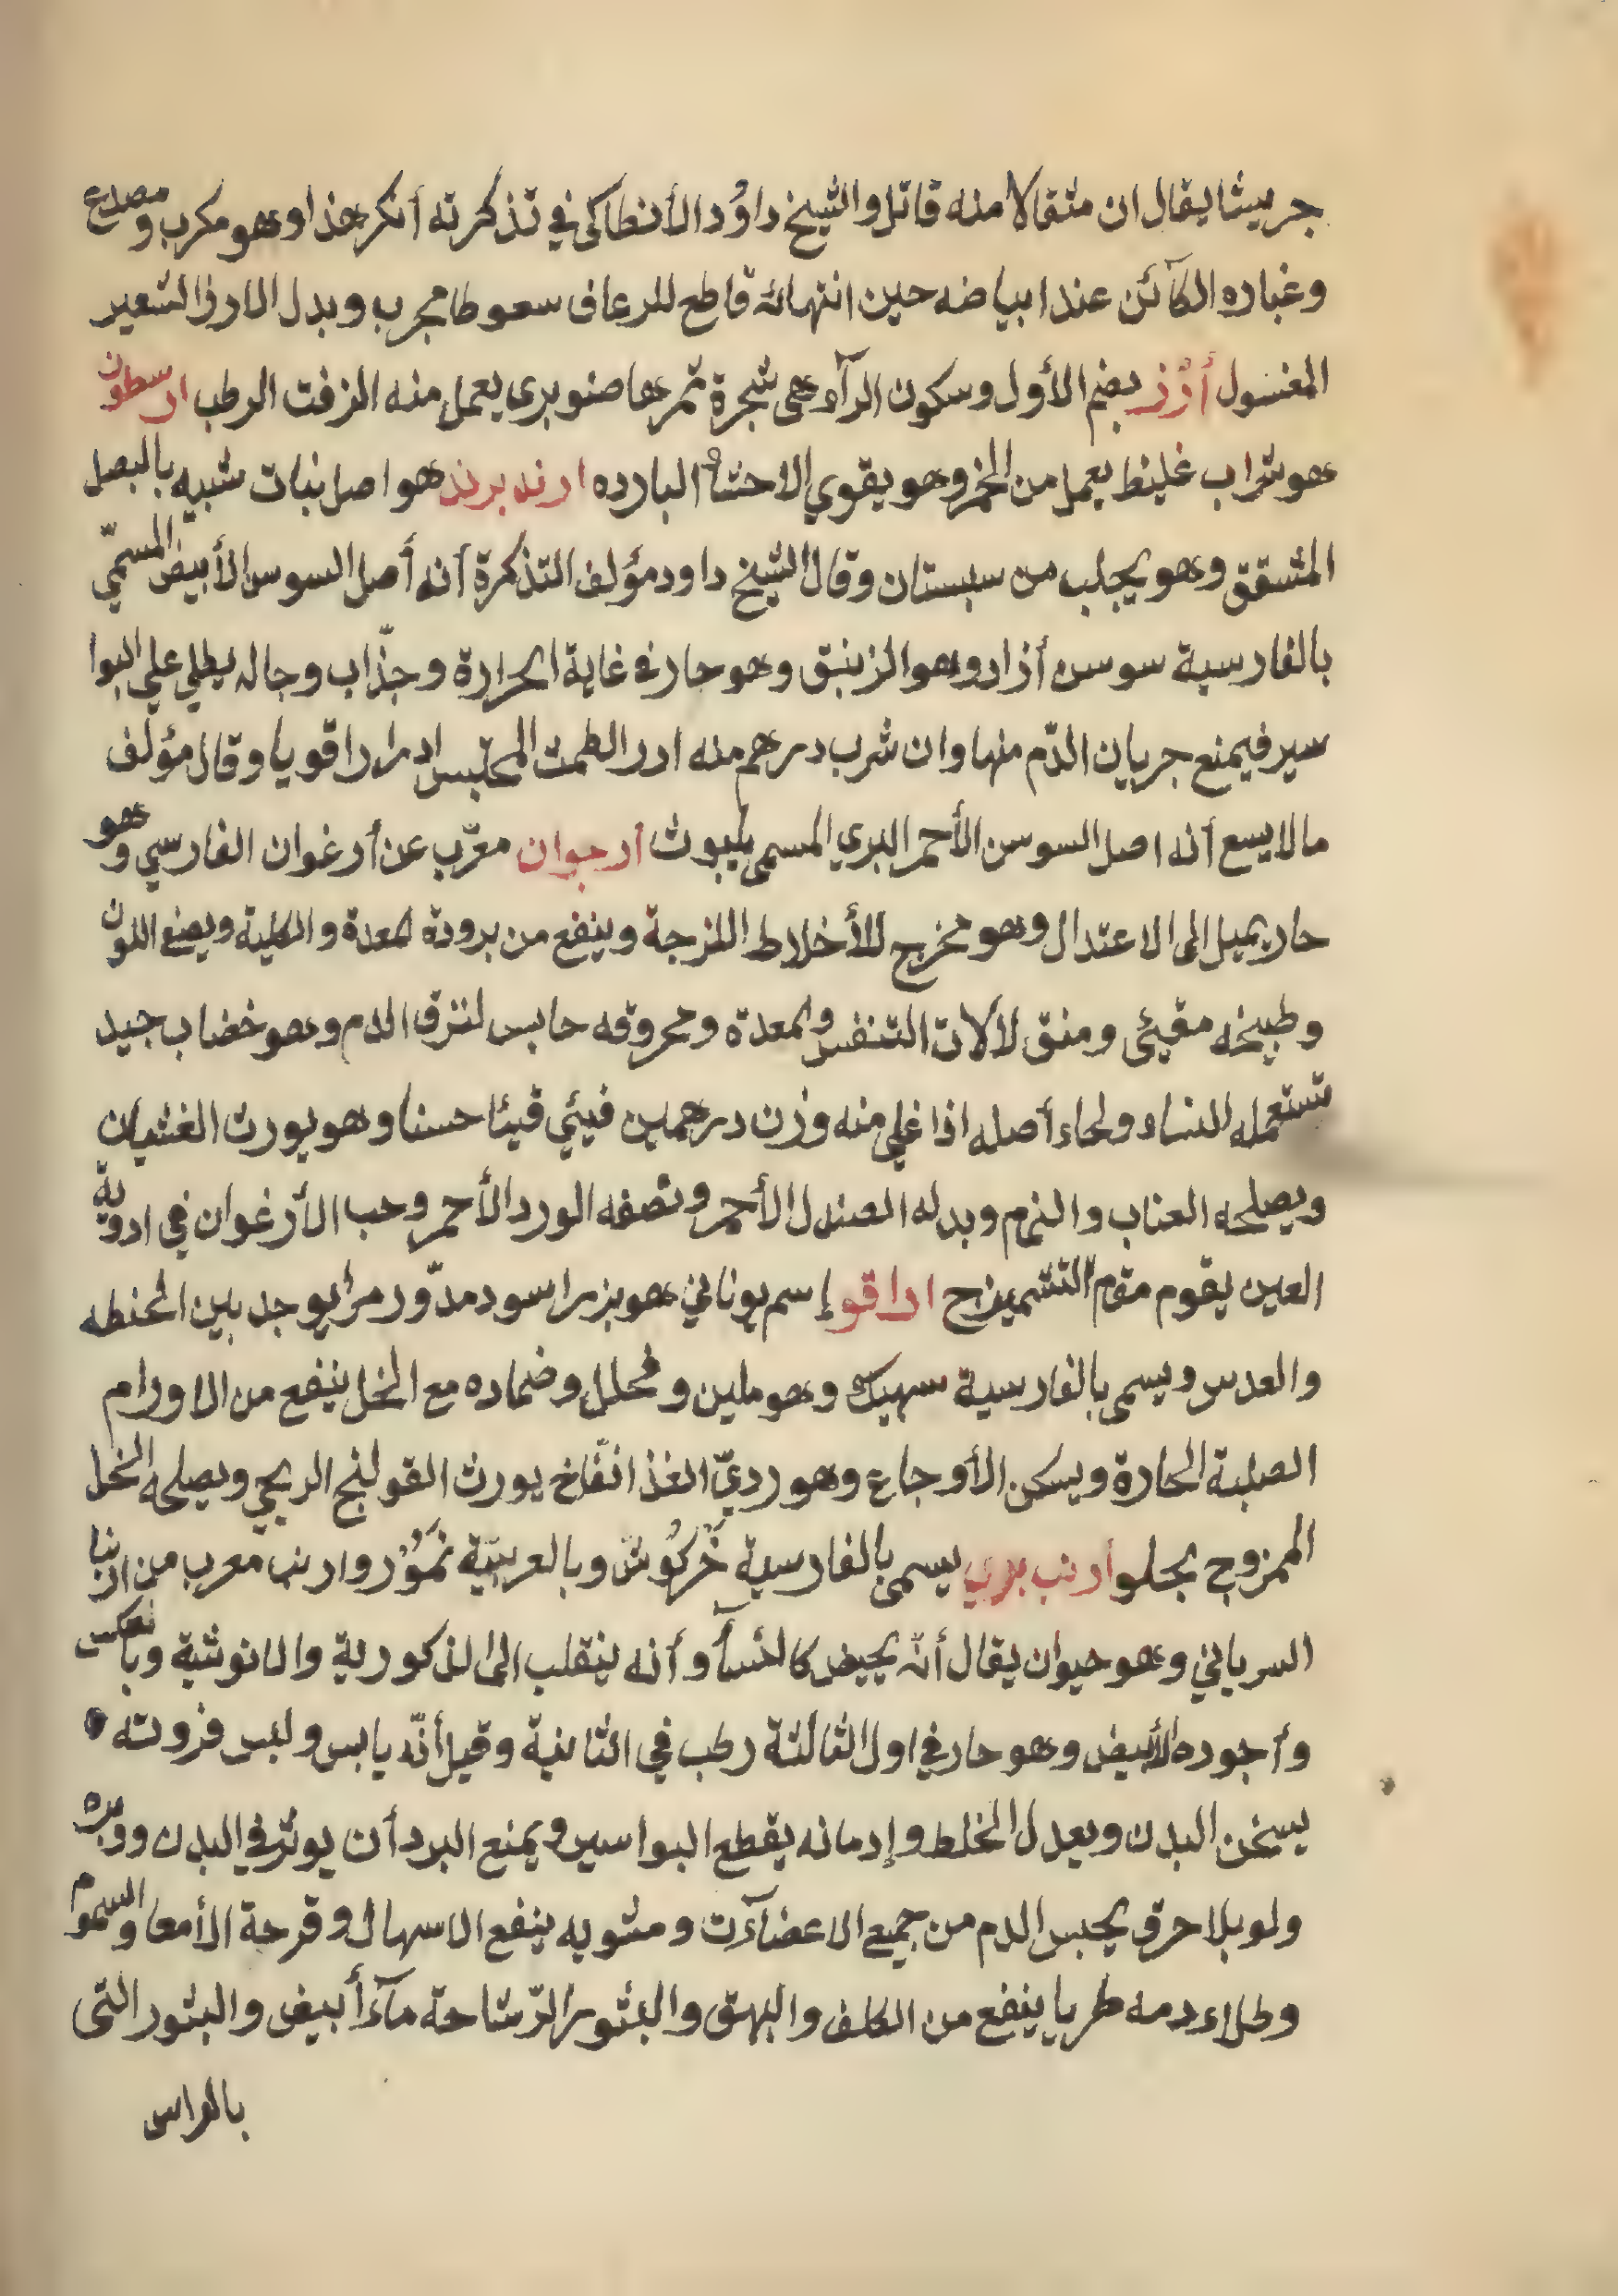 جريشا يقال ان مثقالا منه قاتل والشيخ داوُد الأنطاكى في تذكرته أنكر هذا وهو مكرب ومصدع
وغباره الكآئن عند ابياضه حين انتهائه قاطع للرعاف سعوطا مجرب وبدل الارز الشعير
المغسول أرْز بضم الأول وسكون الرآء هى شجرة ثمرها صنوبرى يعمل منه الزفت الرطب ارسطون
هو شراب غليظ يعمل من الخمر وهو يقوي الاحشآء البارده ارند برند هو اصل نبات شبيه بالبصل
المشقق وهو يجلب من سبستان وقال الشيخ داود مؤلف التذكرة أنه أصل السوس الأبيض المسمّي
بالفارسية سوسن أزاد وهو الزنبق وهو حار في غاية الحرارة وجذّاب وجاله يطلي علي البوا
سير فيمنع جريان الدّم منها وان شرب درهم منه ادر الطمث المحتبس ادرار اقويا وقال مؤلف
مالا يسع أنه اصل السوسن الأحمر البري المسمى بلبوث أرجوان معرّب عن أرغوان الفارسي وهو
حار يميل الى الاعتدال وهو مخرج للأخلاط اللزجة وينفع من برودة المعدة والكلية ويصفع اللون
وطبيخه مقيئى ومنق لآلات التنفس والمعدة ومحروقه حابس لنزف الدم وهو خضاب جيد
تستعمله النساء ولحاء أصله اذا غلي منه وزن درهمين فيئي قيئا حسنا وهو يورث الغثيان
ويصلحه العناب والنمام وبدله الصندل الأحمر ونصفه الورد الأحمر وحب الأرغوان في ادوية
العين يقوم مقام التشميزج اراقو إسم يوناني هو بزر اسود مدّور مرّ يوجد بين الحنطه
والعدس ويسمى بالفارسية سهيك وهو ملين ومحلل وضماده مع الخل ينفع من الاورام
الصلبة الحارة ويسكن الأوجاع وهو رديّ الغذا نفّاخ يورث القولنج الريحي ويصلحه الخل
الممزوج بحلو أرنب برى يسمى بالفارسية خَرْكُوش وبالعربيّة نمَوُر وارنب معرب من ارنبا
السرياني وهو حيوان يقال أنّه يحيض كالنسآء وأنه ينقلب الى الذكورية والانوثية وبالعكس
وأجوده الأبيض وهو حار في اول الثالثة رطب في الثانية وقيل أنّه يابس ولبس فروته
يسخن البدن ويعدل الخلط وإدمانه يقطع البواسير ويمنع البرد أن يوثر في البدن ووبره
ولو بلا حرق يحبس الدم من جميع الاعضآءت ومشويه ينفع الاسهال وقرحة الأمعا والسموم
وطلاء دمه طريا ينفع من الكلف والبهق والبثور الرّشاحة مآءً أبيض والبثور التى
بالراس